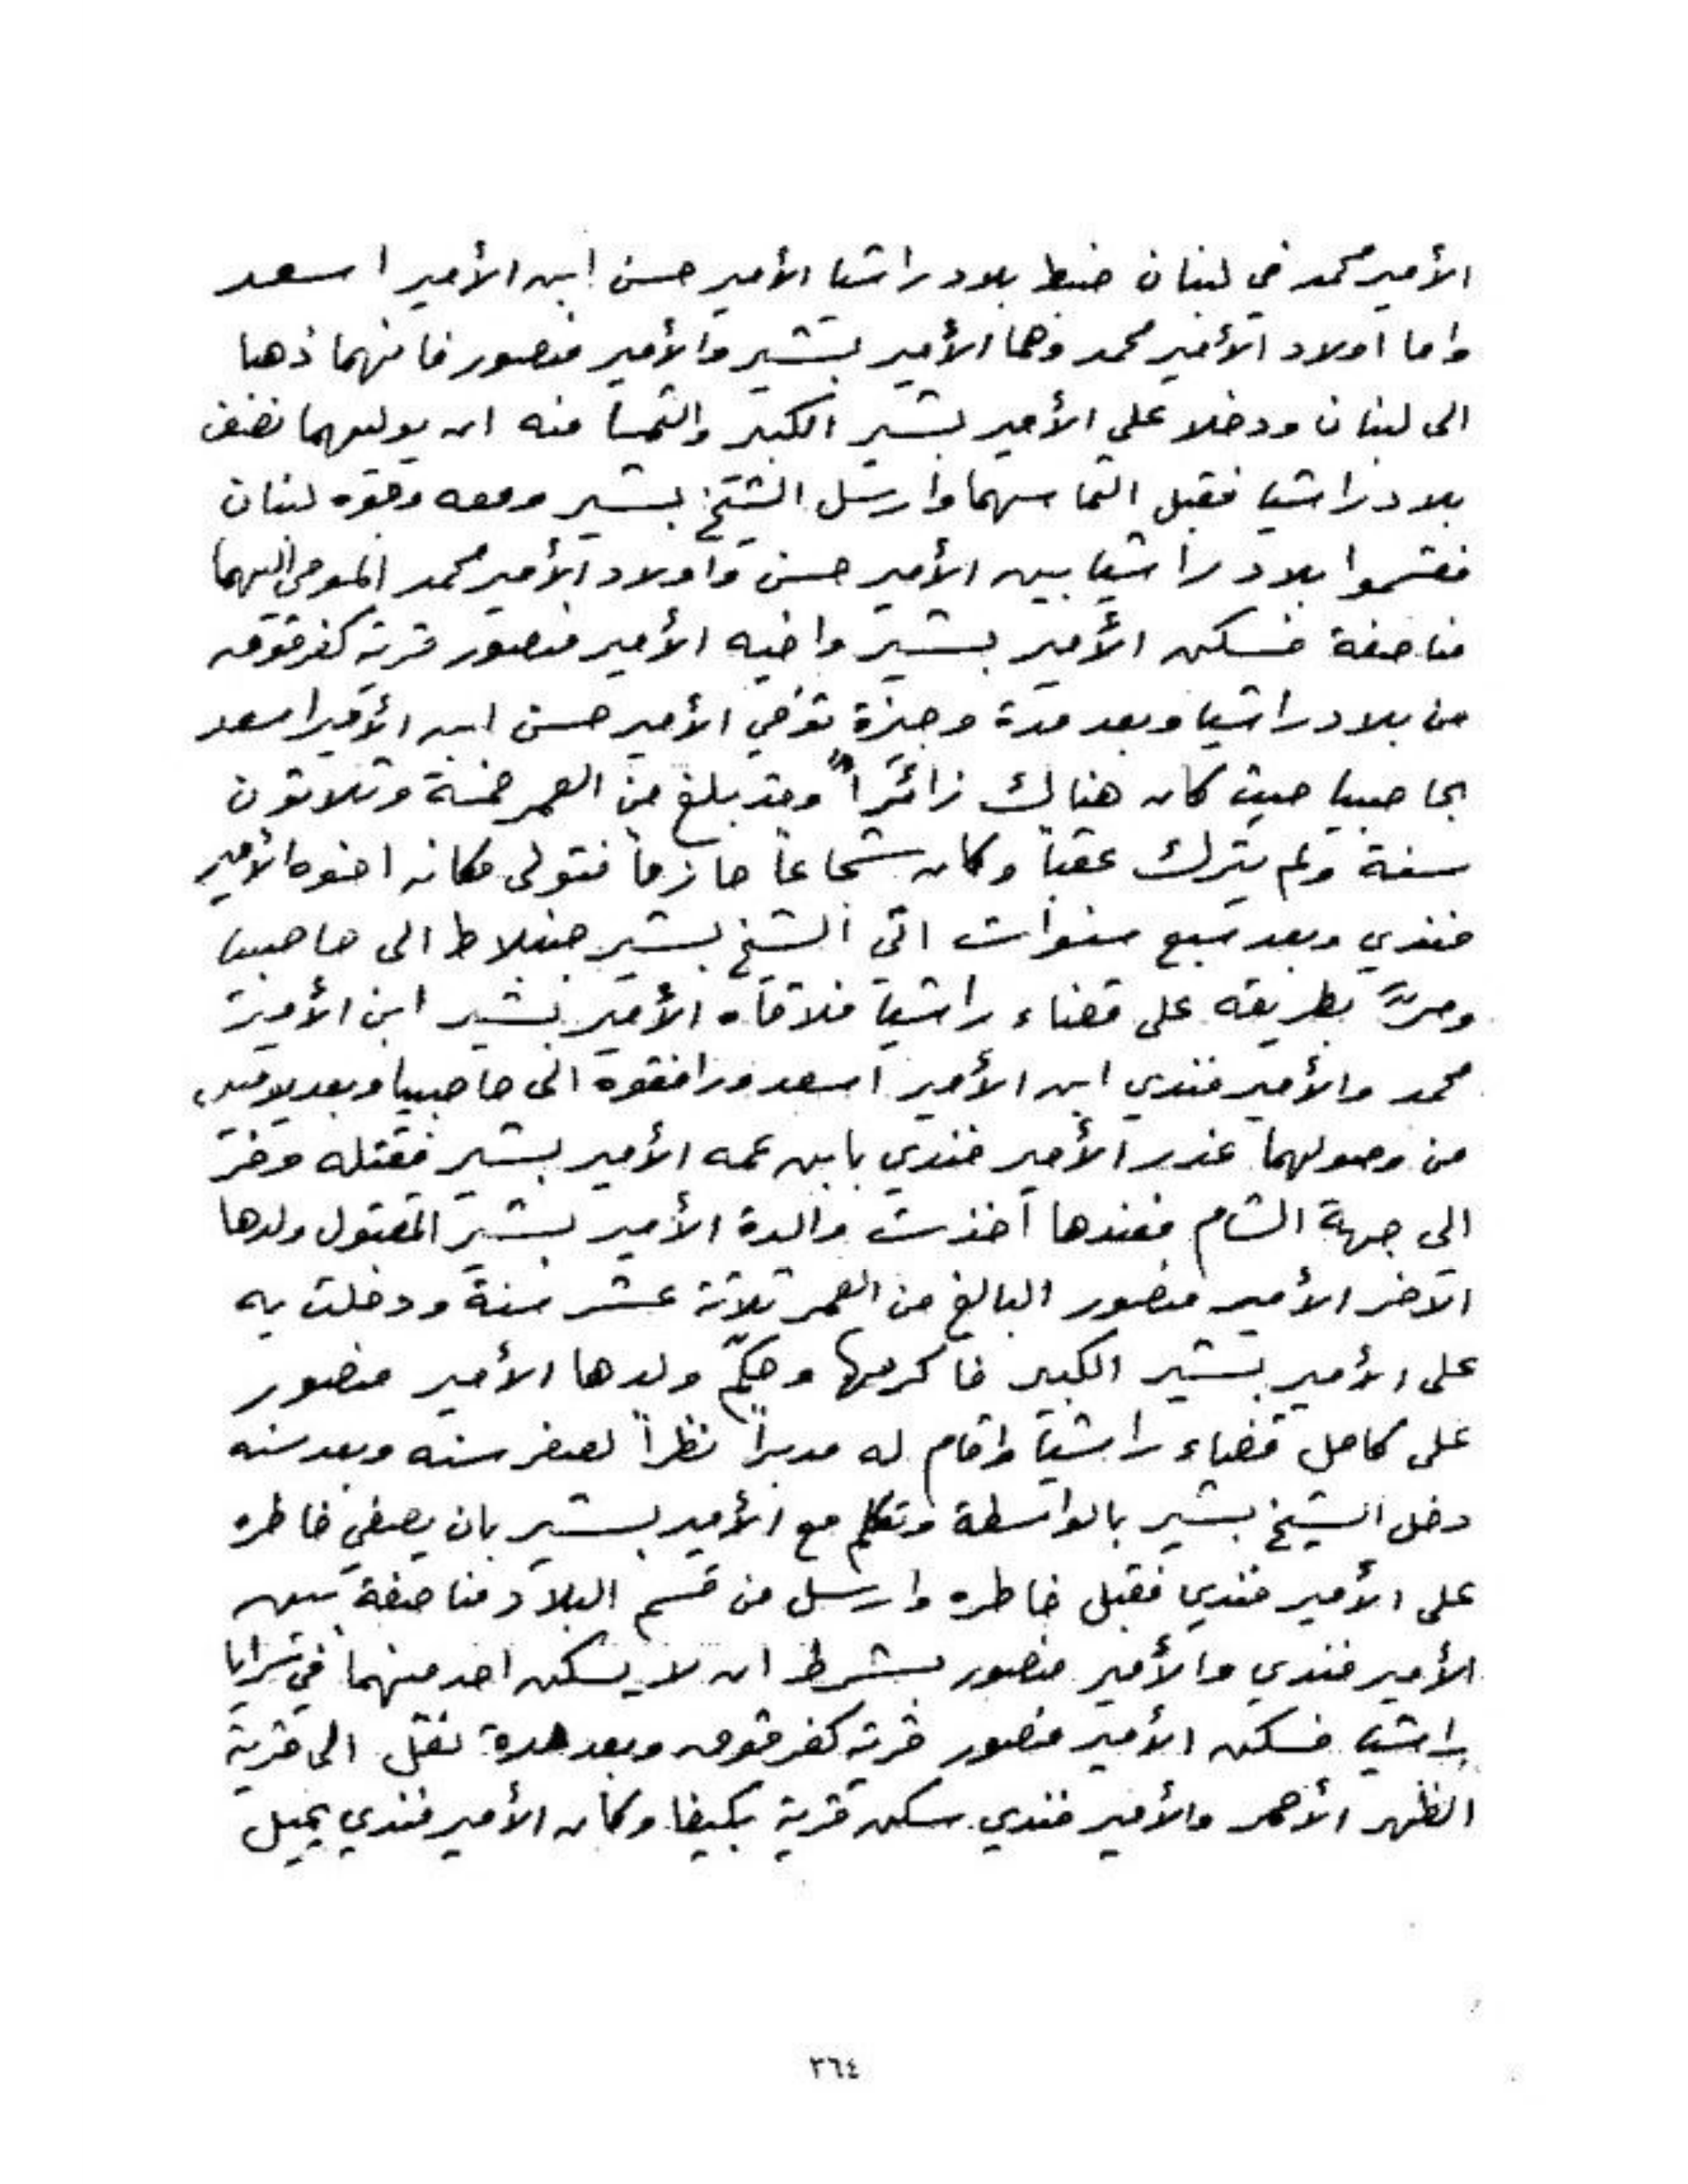 الأمير محمد في لبنان ضبط بلاد راشيا الأمير حسن ابن الأمير اسعد
واما اولاد الأمير محمد وهما الأمير بشير والأمير منصور فانهما ذهبا
الى لبنان ودخلا على الأمير بشير الكبير والتمسا منه ان يوليهما نصف
بلاد راشيا فقبل التماسهما وارسل الشيخ بشير ومعه وجوه لبنان
فقسموا بلاد راشيا بين الأمير حسن واولاد الأمير محمد المومى اليهما
مناصفة فسكن الأمير بشير واخيه الأمير منصور قرية كفرقوق
من بلاد راشيا وبعد مدة وجيزة توفي الأمير حسن ابن الأمير اسعد
بحاصبيا حيث كان هناك زائراً وقد بلغ من العمر خمسة وثلاثون
سنة ولم يترك عقباً وكان شجاعاً حازماً فتولى مكانه اخوه الأمير
فندي وبعد سبع سنوات اتى الشيخ بشير جنبلاط الى حاصبيا
ومرّ بطريقه على قضاء راشيا فلاقاه الأمير بشير ابن الأمير
محمد والأمير فندي ابن الأمير اسعد ورافقوه الى حاصبيا وبعد يومين
من وصولهما غدر الأمير فندي بابن عمه الأمير بشير فقتله وفرّ
الى جهة الشام فعندها أخذت والدة الأمير بشير المقتول ولدها
الآخر الأمير منصور البالغ من العمر ثلاثة عشر سنة ودخلت به
على الأمير بشير الكبير فأكرمها وحكّم ولدها الأمير منصور
على كامل قضاء راشيا واقام له مدبراً نظراً لصغر سنه وبعد سنه
دخل الشيخ بشير بالواسطة وتكلم مع الأمير بشير بان يصفي خاطره
على الأمير فندي فقبل خاطره وارسل من قسم البلاد مناصفة بين
الأمير فندي والأمير منصور بشرط ان لا يسكن احد منهما في سرايا
راشيا فسكن الأمير منصور قرية كفرقوق وبعد مدة نقل الى قرية
الظهر الأحمر والأمير فندي سكن قرية بكيفا وكان الأمير فندي يميل
٣٦٤